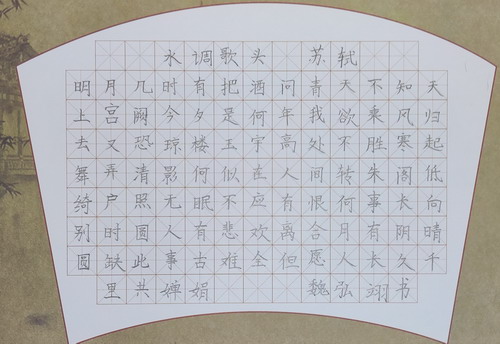 水调歌头 苏轼
明月几时有把酒问青天不知天
上宫阙今夕是何年我欲乘风归
去又恐琼楼玉宇高处不胜寒起
舞弄清影何似在人间转朱阁低
绮户照无眠不应有恨何事长向
别时圆人有悲欢离合月有阴晴
圆缺此事古难全但愿人长久千
里共婵娟 魏弘翊书